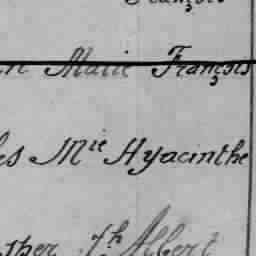 François
n Marie François
es Mie Hyacinthe
ther Jh Albert